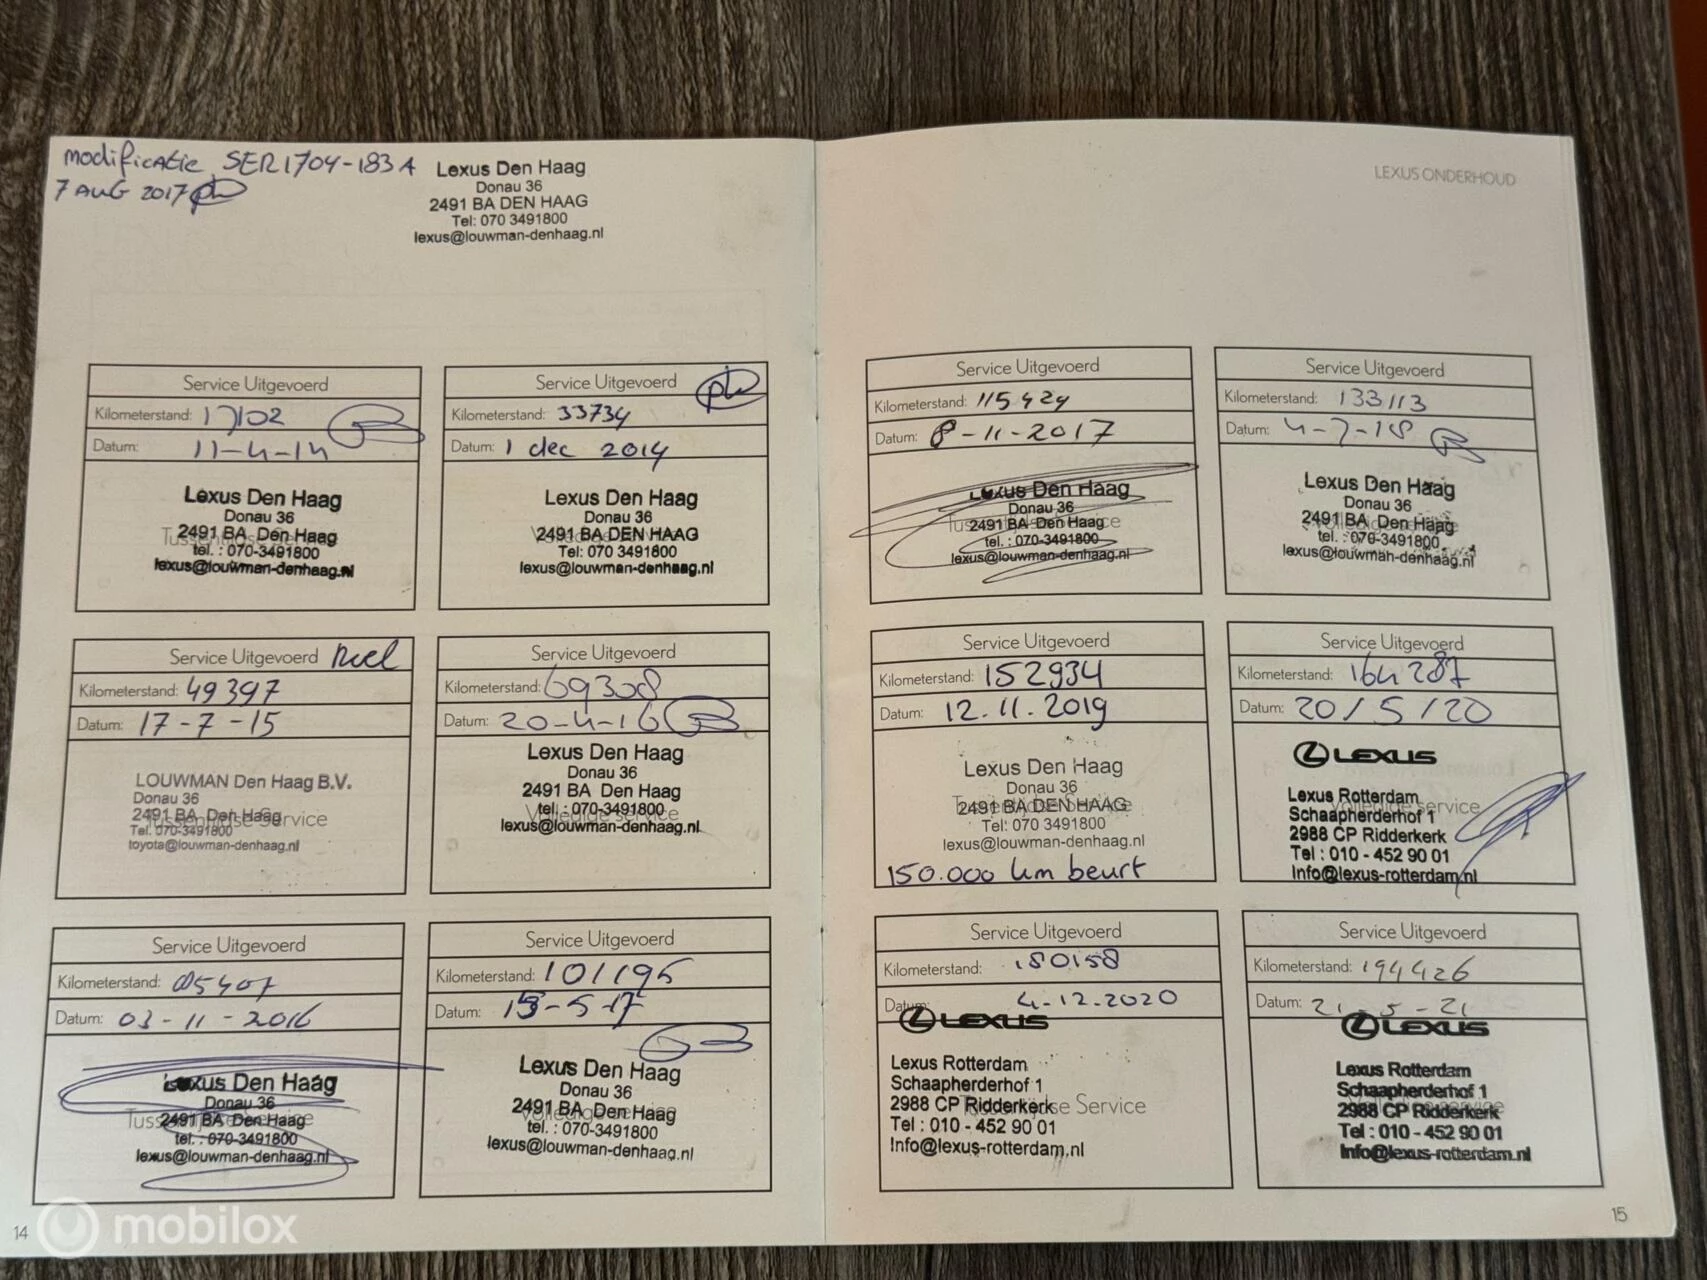 modificatie SER1704-183A
7 AUG 2017
Lexus Den Haag
Donau 36
2491 BA DEN HAAG
Tel: 070 3491800
lexus@louwman-denhaag.nl
Service Uitgevoerd
Kilometerstand: 17102
Datum: 11-4-14
Lexus Den Haag
Donau 36
2491 BA Den Haag
Tussentijdse Service
tel. : 070-3491800
lexus@louwman-denhaag.nl
Service Uitgevoerd
Kilometerstand: 33734
Datum: 1 dec 2014
Lexus Den Haag
Donau 36
2491 BA DEN HAAG
Tel: 070 3491800
lexus@louwman-denhaag.nl
Service Uitgevoerd
Kilometerstand: 49397
Datum: 17-7-15
LOUWMAN Den Haag B.V.
Donau 36
2491 BA Den Haag
Tussentijdse Service
Tel. 070-3491800
toyota@louwman-denhaag.nl
Service Uitgevoerd
Kilometerstand: 69308
Datum: 20-4-16
Lexus Den Haag
Donau 36
2491 BA Den Haag
tel. : 070-3491800
Volledige service
lexus@louwman-denhaag.nl
Service Uitgevoerd
Kilometerstand: 85407
Datum: 03-11-2016
Lexus Den Haag
Donau 36
2491 BA Den Haag
Tussentijdse Service
tel. : 070-3491800
lexus@louwman-denhaag.nl
Service Uitgevoerd
Kilometerstand: 101195
Datum: -5-17
Lexus Den Haag
Donau 36
2491 BA Den Haag
Volledige service
tel. : 070-3491800
lexus@louwman-denhaag.nl
14
LEXUS ONDERHOUD
Service Uitgevoerd
Kilometerstand: 115424
Datum: 8-11-2017
Lexus Den Haag
Donau 36
2491 BA Den Haag
Tussentijdse Service
tel. : 070-3491800
lexus@louwman-denhaag.nl
Service Uitgevoerd
Kilometerstand: 133113
Datum: 4-7-18
Lexus Den Haag
Donau 36
2491 BA Den Haag
Volledige service
tel. : 070-3491800
lexus@louwman-denhaag.nl
Service Uitgevoerd
Kilometerstand: 152934
Datum: 12.11.2019
Lexus Den Haag
Donau 36
2491 BA DEN HAAG
Tussentijdse Service
Tel: 070 3491800
lexus@louwman-denhaag.nl
150.000 km beurt
Service Uitgevoerd
Kilometerstand: 164287
Datum: 20/5/20
LEXUS
Lexus Rotterdam
Volledige service
Schaapherderhof 1
2988 CP Ridderkerk
Tel : 010 - 452 90 01
Info@lexus-rotterdam.nl
Service Uitgevoerd
Kilometerstand: 180158
Datum: 4-12-2020
LEXUS
Lexus Rotterdam
Schaapherderhof 1
2988 CP Ridderkerk
Tussentijdse Service
Tel : 010 - 452 90 01
Info@lexus-rotterdam.nl
Service Uitgevoerd
Kilometerstand: 194426
Datum: 21-5-21
LEXUS
Lexus Rotterdam
Schaapherderhof 1
2988 CP Ridderkerk
Volledige service
Tel : 010 - 452 90 01
Info@lexus-rotterdam.nl
15
mobilox